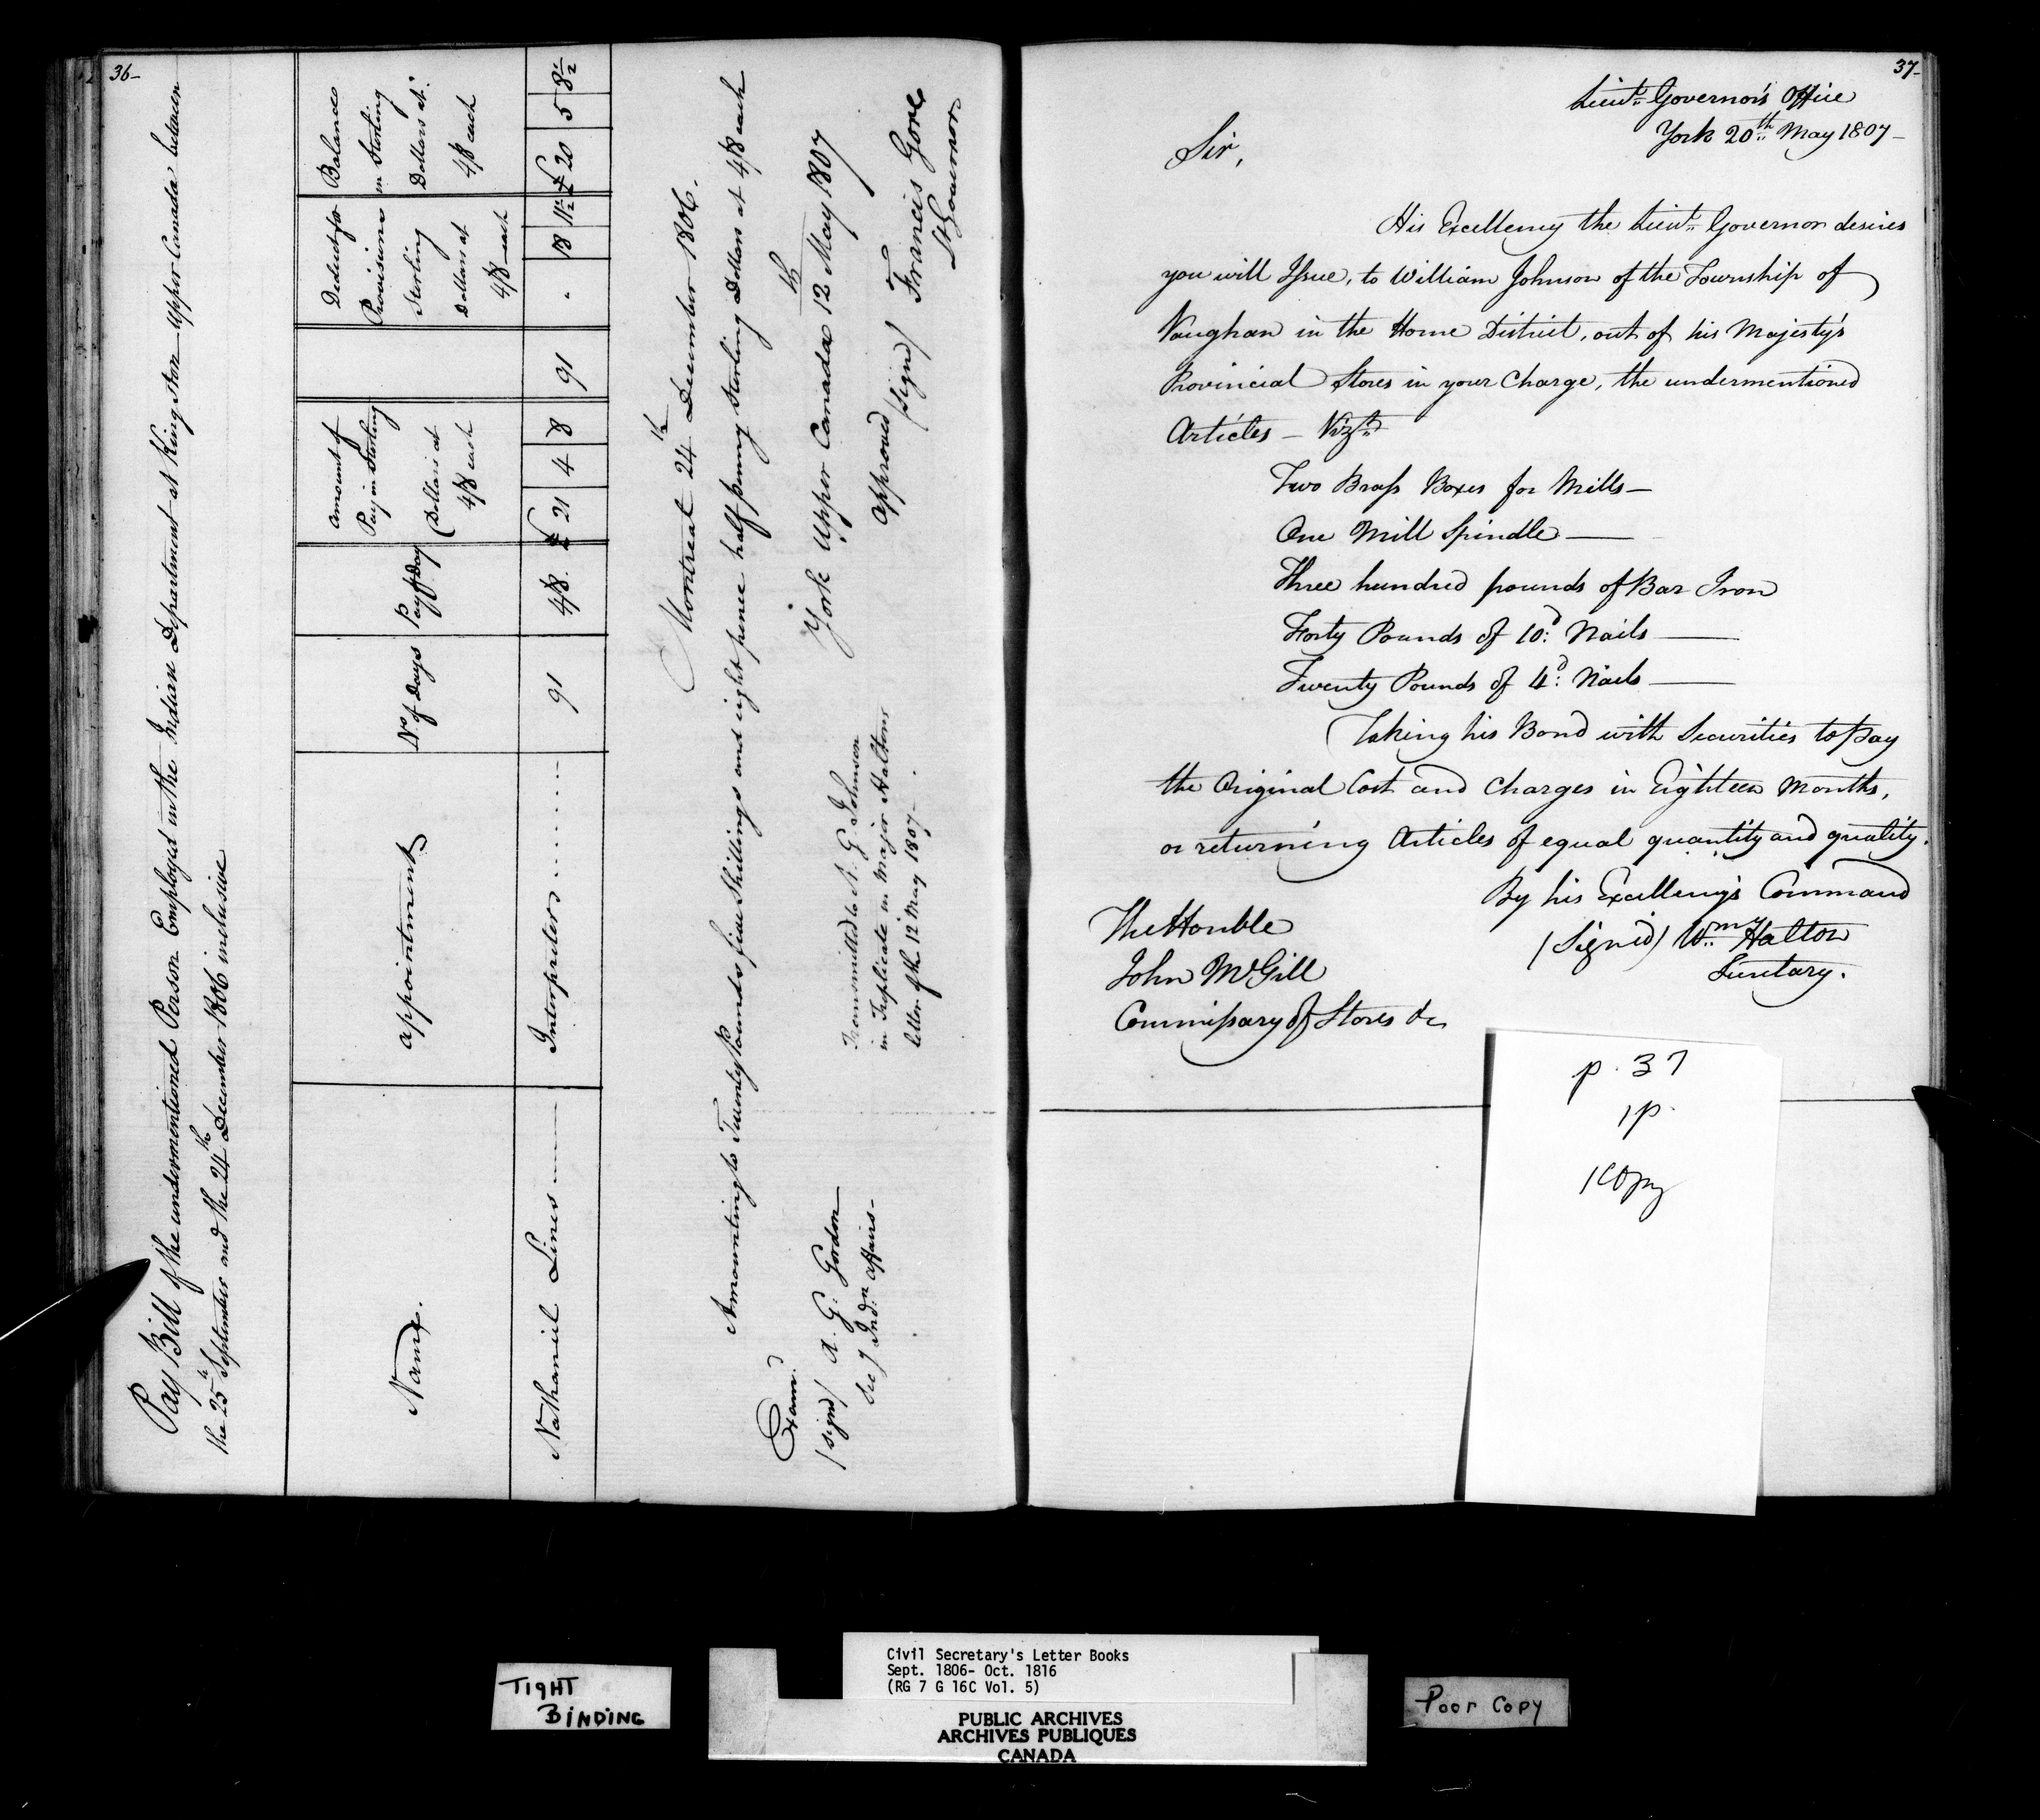 36-
Pay Bill of the undermentioned Person Employed in the Indian Department at Kingston Upper Canada between
the 25th September and the 24th December 1806 inclusive
Name.
appointment
No of days
Pay P Day
Amount of
Pay in Sterling
(Dollars at
4/8 each
Deduct for
Provisions
Sterling
Dollars at
4/8 each
Balance
in Sterling
Dollars at
4/8 each
Nathaniel Lines Interpreter 91 4/8. £ 21 4 8 91 . 18 11½ £ 20 5 8½
Montreal 24th December 1806.
Amounting to Twenty Pounds five Shillings and eight pence half penny Sterling Dollars at 4/8 each
Exam.d
(signd) A. G. Gordon
Sec.y Ind.n Affairs -
Transmitted to
in Triplicate in Major Halton's
letter of the 12 May 1807.
York Upper Canada 12th May 1807
Approved
(Signd) Francis Gore
Lt Governor
37-
Lieut.t Governor's Office
York 20th May 1807-
Sir,
His Excellency the Lieut.t Governor desires
you will Issue, to William Johnson of the Township of
Vaughan in the Home District, out of his Majesty's
Provincial Stores in your Charge, the undermentioned
Articles - Vizt
Two Brass Boxes for Mills-
One Mill Spindle
Three hundred pounds of Bar Iron
Forty Pounds of 10.d Nails
Twenty Pounds of 4.d Nails
Taking his Bond with Securities to Pay
the Original Cost and Charges in Eighteen Months,
or returning Articles of equal quantity and quality.
By his Excellency's Command
(Signed) Wm Halton
Secretary.
The Honble
John McGill
Commissary of Stores &c
p. 37
1p.
1 Copy
TIGHT
BINDING
Civil Secretary's Letter Books
Sept. 1806- Oct. 1816
(RG 7 G 16C Vol. 5)
PUBLIC ARCHIVES
ARCHIVES PUBLIQUES
CANADA
Poor Copy